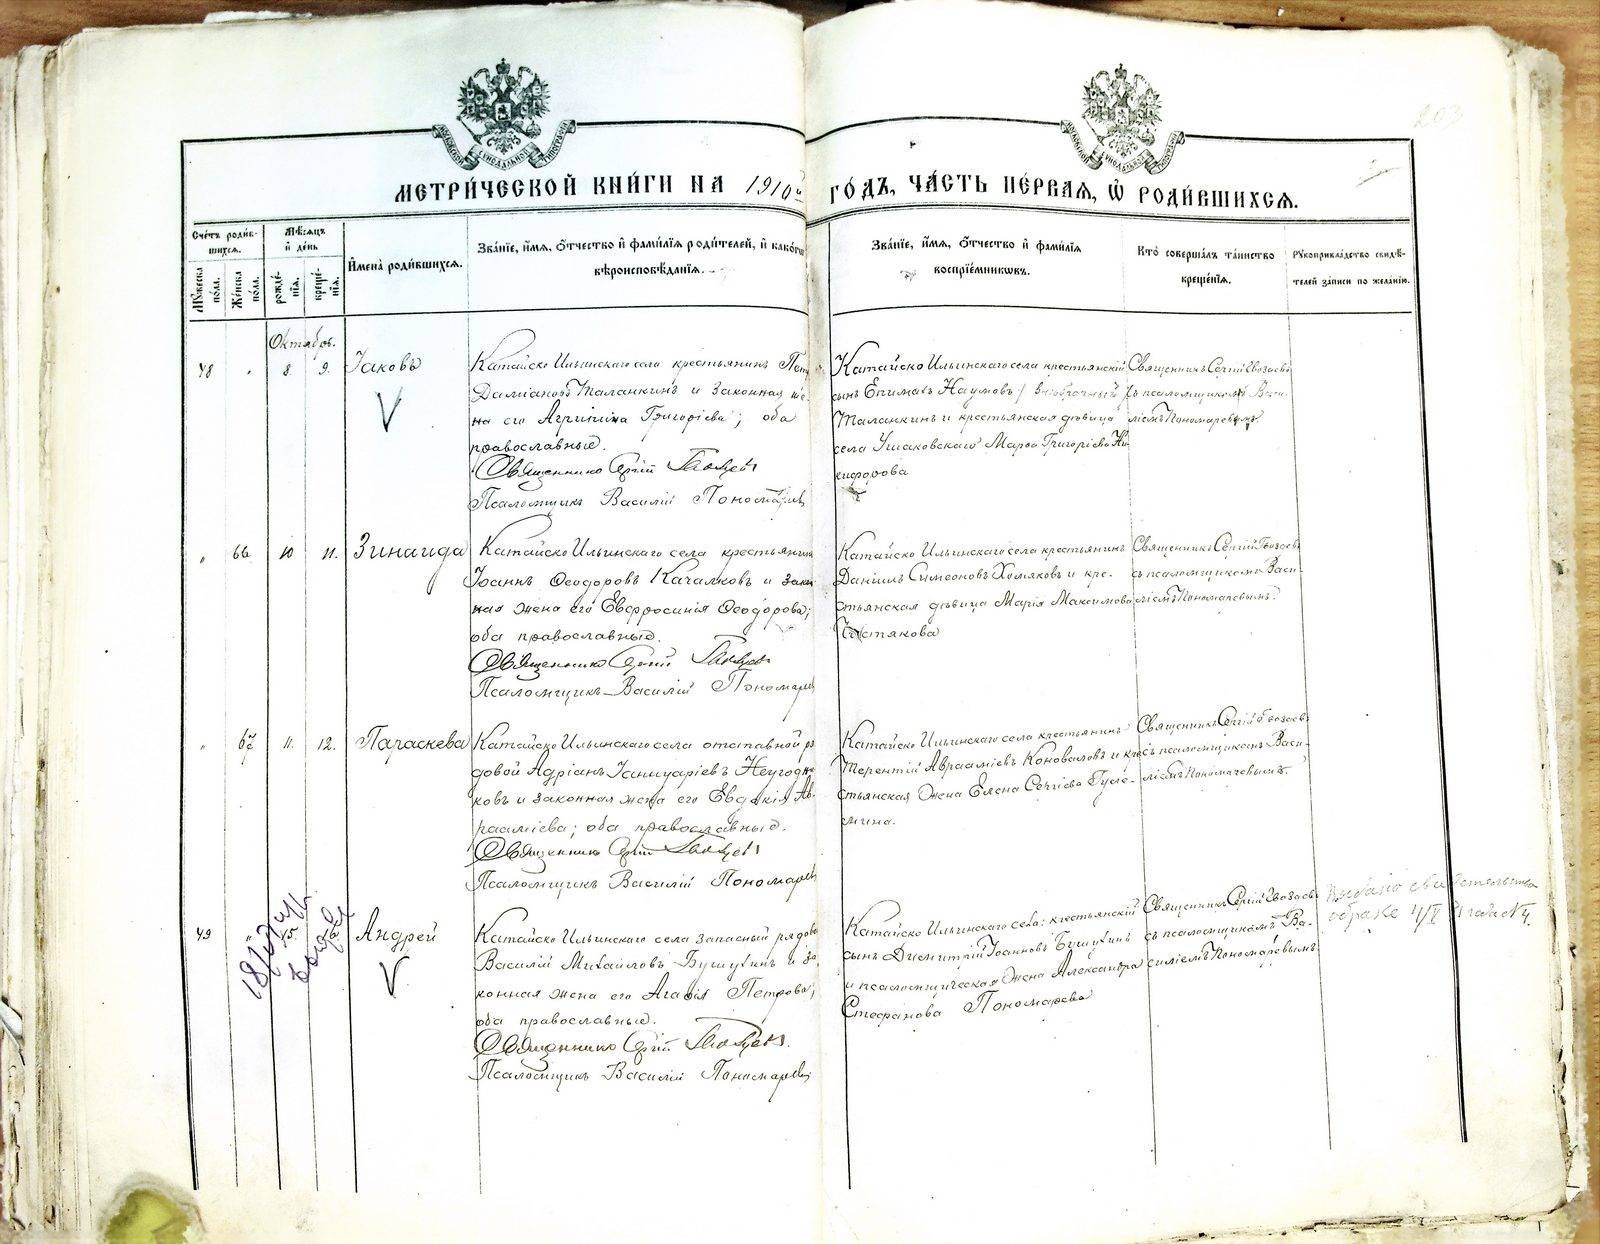 203
МОСКОВСКОЙ СѴНОДАЛЬНОЙ ТИПОГРАФІИ
МОСКОВСКОЙ СѴНОДАЛЬНОЙ ТИПОГРАФІИ
МЕТРИ́ЧЕСКОЙ КНИ́ГИ НА 1910й ГО́ДЪ, ЧА́СТЬ ПЕ́РВАЯ, Ѽ РОДИ́ВШИХСЯ.
Сче́тъ роди́в-
шихся.
Мꙋ́жеска по́ла.
Же́нска по́ла.
Мѣ́сяцъ и҆ де́нь
рожде́нїя.
креще́нїя.
И҆мена̀ роди́вшихся.
Зва́нїе, и҆́мя, ѻ҆́тчество и҆ фами́лїя роди́телей, и҆ како́гѡ
вѣроисповѣ́данїя.
Зва́нїе, и҆́мя, ѻ҆́тчество и҆ фами́лїя
воспрїе́мникѡвъ.
Кто̀ соверша́лъ та́инство
креще́нїя.
Рꙋкоприкла́дство свидѣ́-
телей за́писи по жела́нїю.
Октябрь.
48 " 8. 9. Іаковъ
Катайско Ильинскаго села крестьянинъ
Даміановъ Таланкинъ и законная же-
на его Агрипина Григоріева; оба
православные.
Священникъ Сергій Гвоздевъ
Псаломщикъ Василій Пономарев
Катайско Ильинскаго села крестьянскій
сынъ Епимахъ Наумовъ
Таланкинъ и крестьянская дѣвица
села Ушаковскаго Марѳа Григоріева Ни-
кифорова
Священникъ Сергій Гвоздевъ
съ псаломщикомъ Васи-
ліемъ Пономаревымъ
" 66 10 11. Зинаида
Катайско Ильинскаго села крестьянин
Іоаннъ Ѳеодоровъ Качалковъ и закон
ная жена его Евфросинія Ѳеодорова;
оба православные.
Священникъ Сергій Гвоздевъ
Псаломщикъ Василій Пономарев
Катайско Ильинскаго села крестьянинъ
Даніилъ Симеоновъ Хомяковъ и кре-
стьянская дѣвица Марія Максимова
Чистякова
Священникъ Сергій Гвоздевъ
съ псаломщикомъ Васи-
ліемъ Пономаревымъ.
" 67 11. 12. Параскева
Катайско Ильинскаго села отставной ря
довой Адріанъ Іаннуаріевъ Неугодни
ковъ и законная жена его Евдокія Ав-
рааміева; оба православные.
Священникъ Сергій Гвоздевъ
Псаломщикъ Василій Пономарев
Катайско Ильинскаго села крестьянинъ
Терентій Аврааміевъ Коноваловъ и кре
стьянская жена Елена Сергіева Гуле-
мина.
Священникъ Сергій Гвоздевъ
съ псаломщикомъ Васи-
ліемъ Пономаревымъ.
49 " Андрей
Катайско Ильинскаго села запасный рядово
Василій Михайловъ Бушукинъ и за-
конная жена его Агафія Петрова;
оба православные.
Священникъ Сергій Гвоздевъ
Псаломщикъ Василій Пономарев
Катайско Ильинскаго села: крестьянскій
сынъ Димитрій Іоанновъ Бушукинъ
и псаломщическая жена Александра
Стефанова Пономарева
Священникъ Сергій Гвоздевъ
съ псаломщикомъ Ва-
силіемъ Пономаревымъ
Выдано свидетельство
о браке